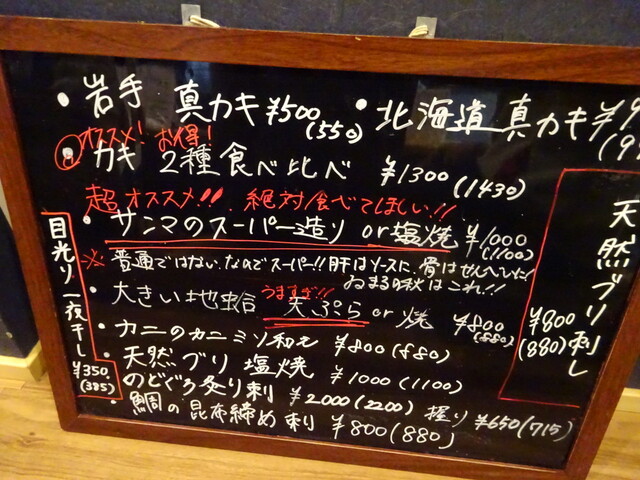 ・岩手 真カキ ¥500 (550)
・北海道 真カキ ¥9
(9
オススメ! お得!
カキ 2種食べ比べ ¥1300 (1430)
超オススメ!! 絶対食べてほしい!!
・サンマのスーパー造り or 塩焼 ¥1000
(1100)
※普通ではない。なのでスーパー!! 肝はソースに、骨はせんべいに!
おまるの秋はこれ!!
うますぎ!!
・大きい地蛤 天ぷら or 焼 ¥800
(880)
・カニのカニミソ和え ¥800 (880)
・天然ブリ 塩焼 ¥1000 (1100)
・のどぐろ炙り刺 ¥2000 (2200) 握り ¥650 (715)
・鯛の昆布締め刺 ¥800 (880)
目光り一夜干し
¥350
(385)
天然ブリ刺し
¥800
(880)